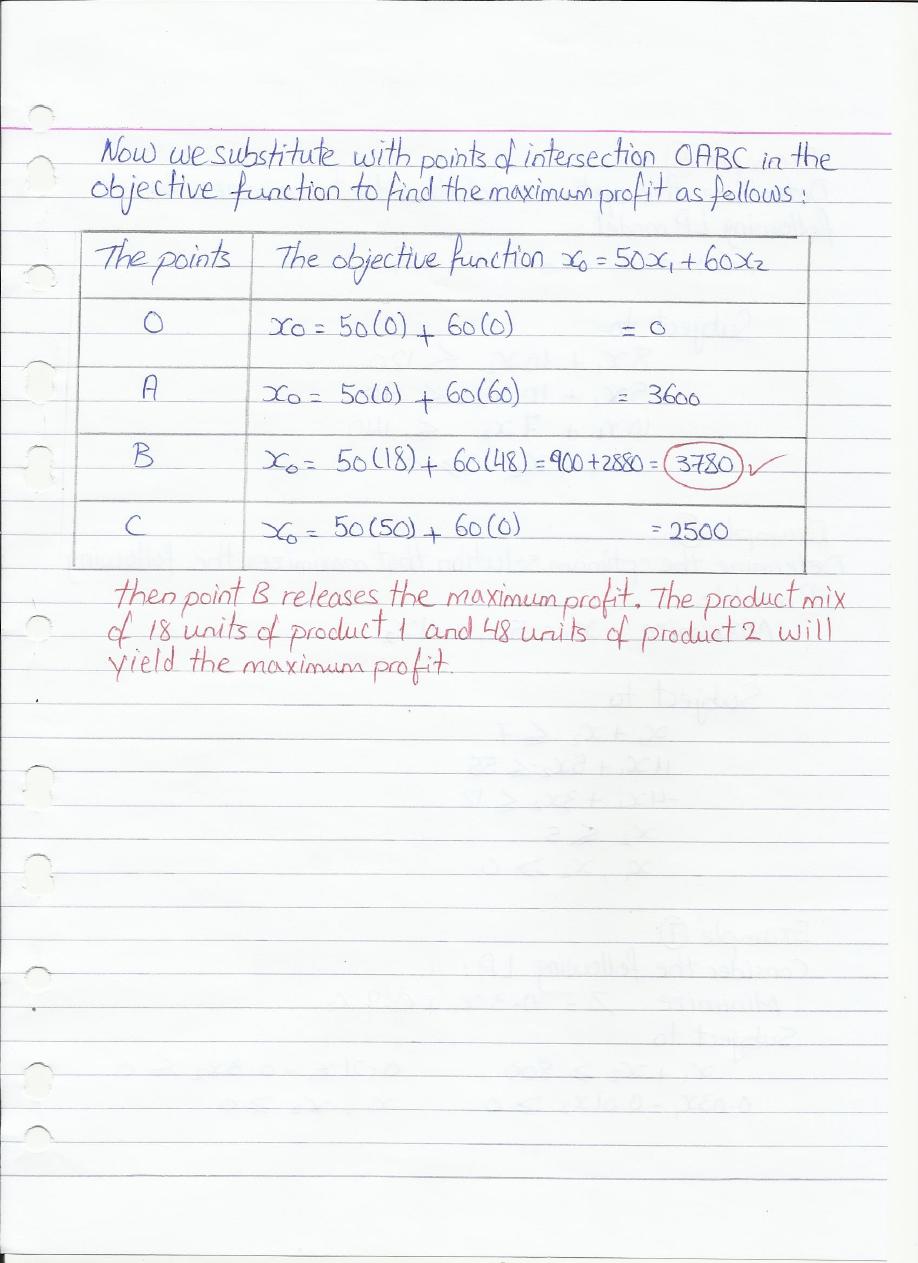 Now we substitute with points of intersection OABC in the
objective function to find the maximum profit as follows:
The points The objective function x₀ = 50x₁ + 60x₂
O x₀ = 50(0) + 60(0) = 0
A x₀ = 50(0) + 60(60) = 3600
B x₀ = 50(18) + 60(48) = 900 + 2880 = 3780 ✓
C x₀ = 50(50) + 60(0) = 2500
then point B releases the maximum profit. The product mix
of 18 units of product 1 and 48 units of product 2 will
yield the maximum profit.